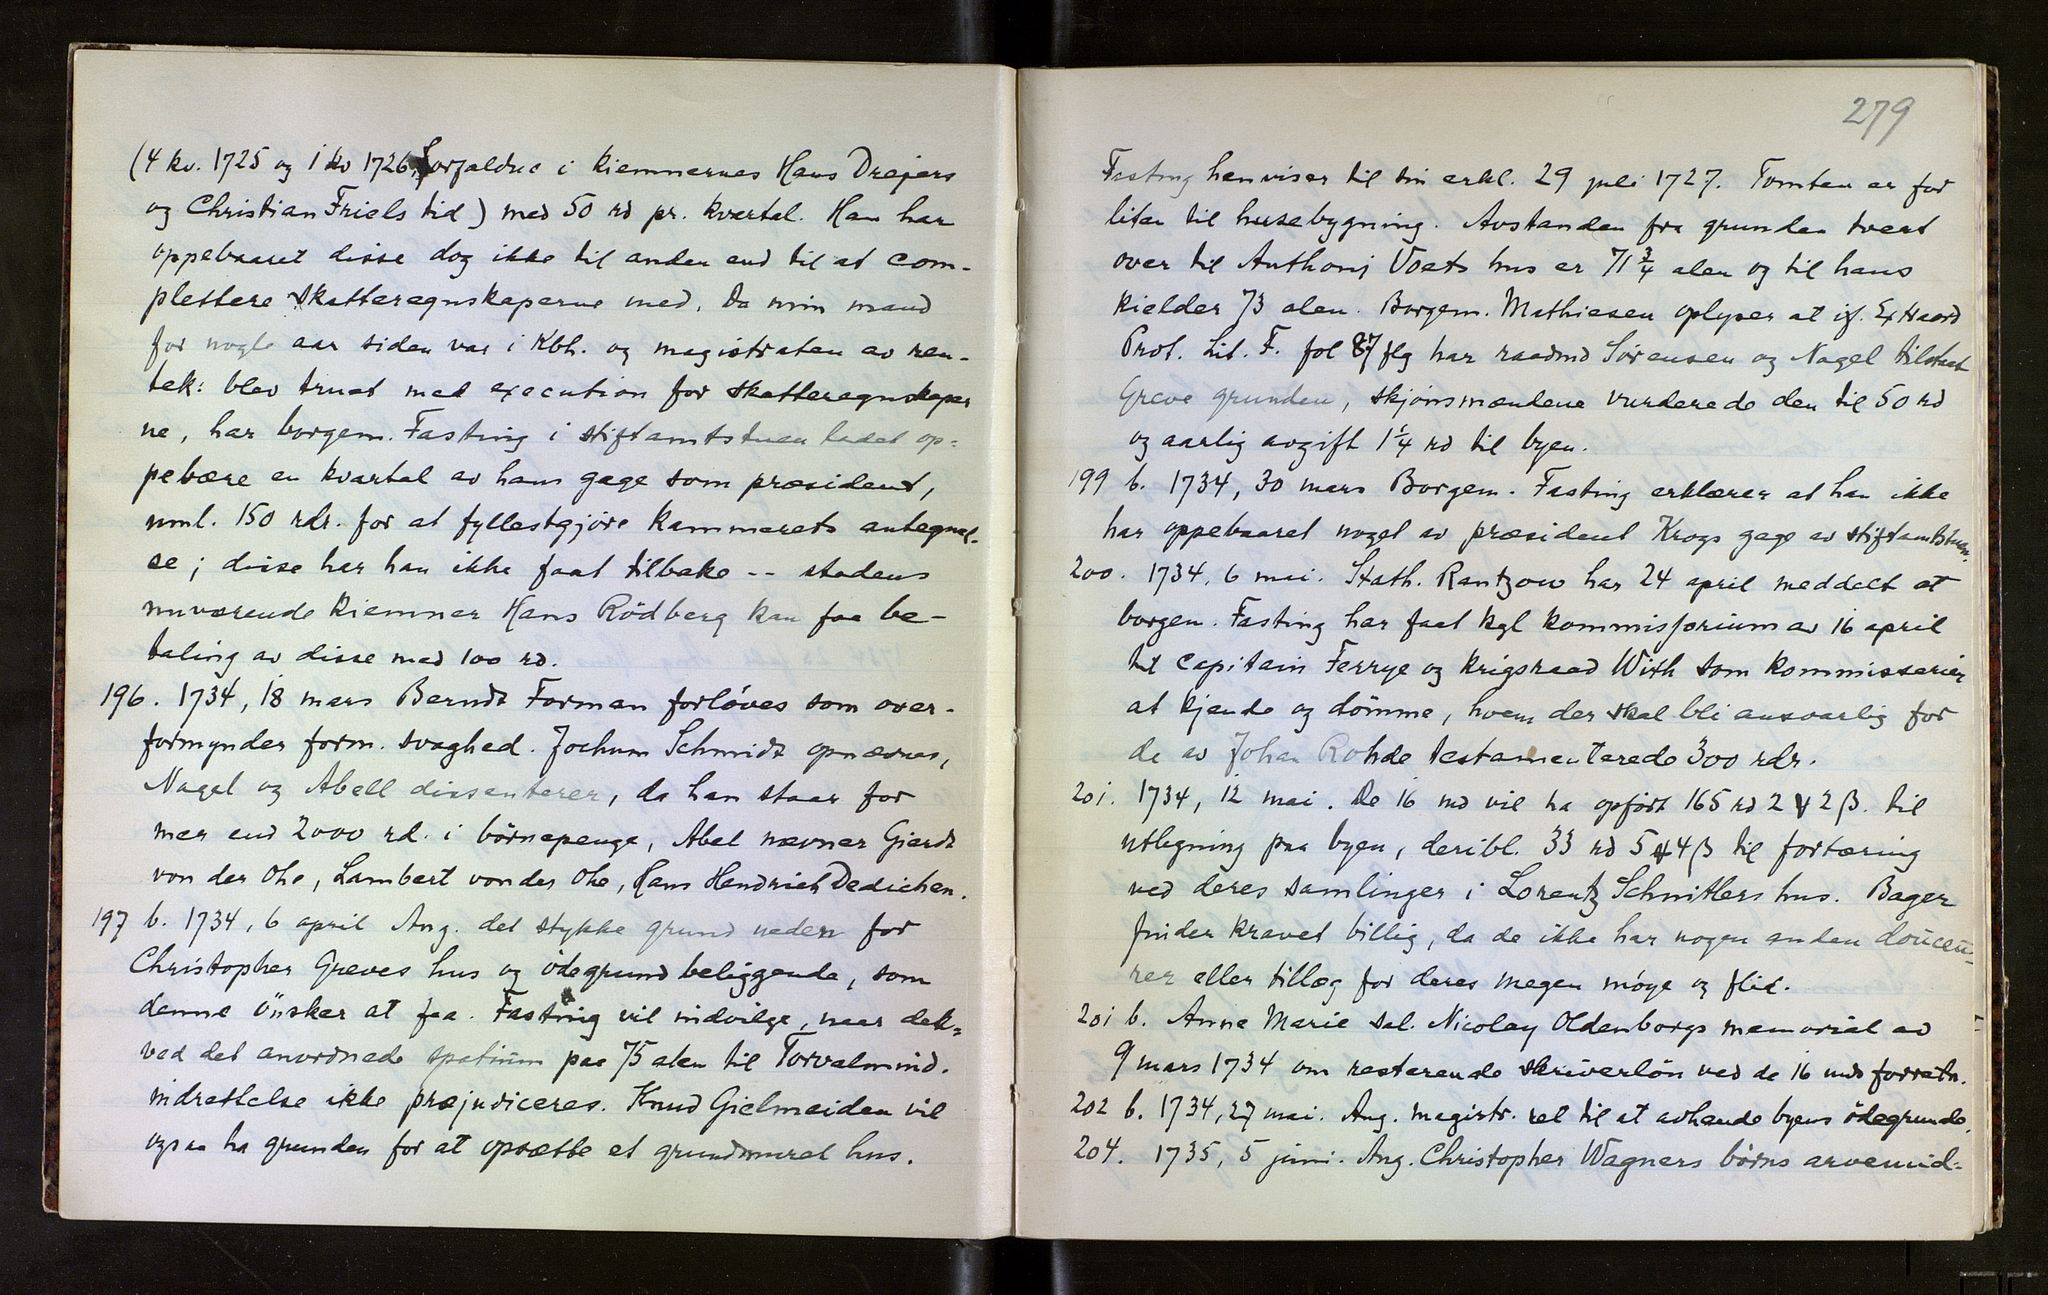 (4 kv. 1725 og 1 kv 1726, forfaldne i kiemnernes Hans Drejers
og Christian Friels tid) med 50 rd pr. kvartal. Han har
oppebaaret disse dog ikke til anden end til at com-
plettere skatteregnskaperne med. Da min mand
for nogle aar siden var i Kbh. og magistraten av ren-
tek: blev truet med execution for skatteregnskaper
ne, har borgem. Fasting i stiftamtstuen ladet op-
pebære en kvartal av hans gage som præsident,
nml. 150 rdr. for at fyllestgjöre kammerets antegnel-
se; disse har han ikke faat tilbake -- stadens
nuværende kiemner Hans Rödberg kan faa be-
taling av disse med 100 rd.
196. 1734, 18 mars Berndt Forman forlöves som over-
formynder form. svaghed. Jochum Schmidt opnævnes,
Nagel og Abell dissenterer, da han staar for
mer end 2000 rd. i börnepenge, Abel nævner Gierdt
von der Ohe, Lambert von der Ohe, Hans Hendrich Dedichen.
197 b. 1734, 6 april Ang. det stykke grund neden for
Christopher Greves hus og ödegrund beliggende, som
denne önsker at faa. Fasting vil indvilge, naar dek-
ved det anordnede spatium paa 75 alen til Torvalmind.
indrettelse ikke præjudiceres. Knud Gielmeiden vil
ogsaa ha grunden for at opsætte et grundmuret hus.
279
Fasting henviser til sin erkl. 29 juli 1727. Tomten er for
liten til husebygning. Avstanden fra grunden tvert
over til Anthonj Voets hus er 71 3/4 alen og til hans
kielder 73 alen. Borgem. Mathiesen oplyser at if. Ex traord
Prot. Lit. F. fol 87 flg har raadmd Sörensen og Nagel tilstaat
Greve grunden, skjönsmændene vurderede den til 50 rd
og aarlig avgift 1 1/4 rd til byen.
199 b. 1734, 30 mars Borgem. Fasting erklærer at han ikke
har oppebaaret noget av præsident Krogs gage av stiftamtstuen.
200. 1734. 6 mai. Stath. Rantzow har 24 april meddelt at
borgem. Fasting har faat kgl kommissorium av 16 april
til Capitain Ferrye og krigsraad With som kommissærier
at kjende og dömme, hvem der skal bli ansvarlig for
de av Johan Rohde testamenterede 300 rdr.
201. 1734, 12 mai. De 16 md vil ha opfört 165 rd 2 ȣ 2 β. til
utlegning paa byen, deribl. 33 rd 5 ȣ 4 β til fortæring
ved deres samlinger i Lorentz Schnitlers hus. Bager
finder kravet billig, da de ikke har nogen anden douceu-
rer eller tillæg for deres megen möye og flid.
201 b. Anne Marie sal. Nicolay Oldenborgs memorial av
9 mars 1734 om resterende skriverlön ved de 16 mds forretn.
202 b. 1734, 27 mai. Ang. magistr. ret til at avhende byens ödegrunde.
204. 1735, 5 juni. Ang. Christopher Wagners börns arvemid-